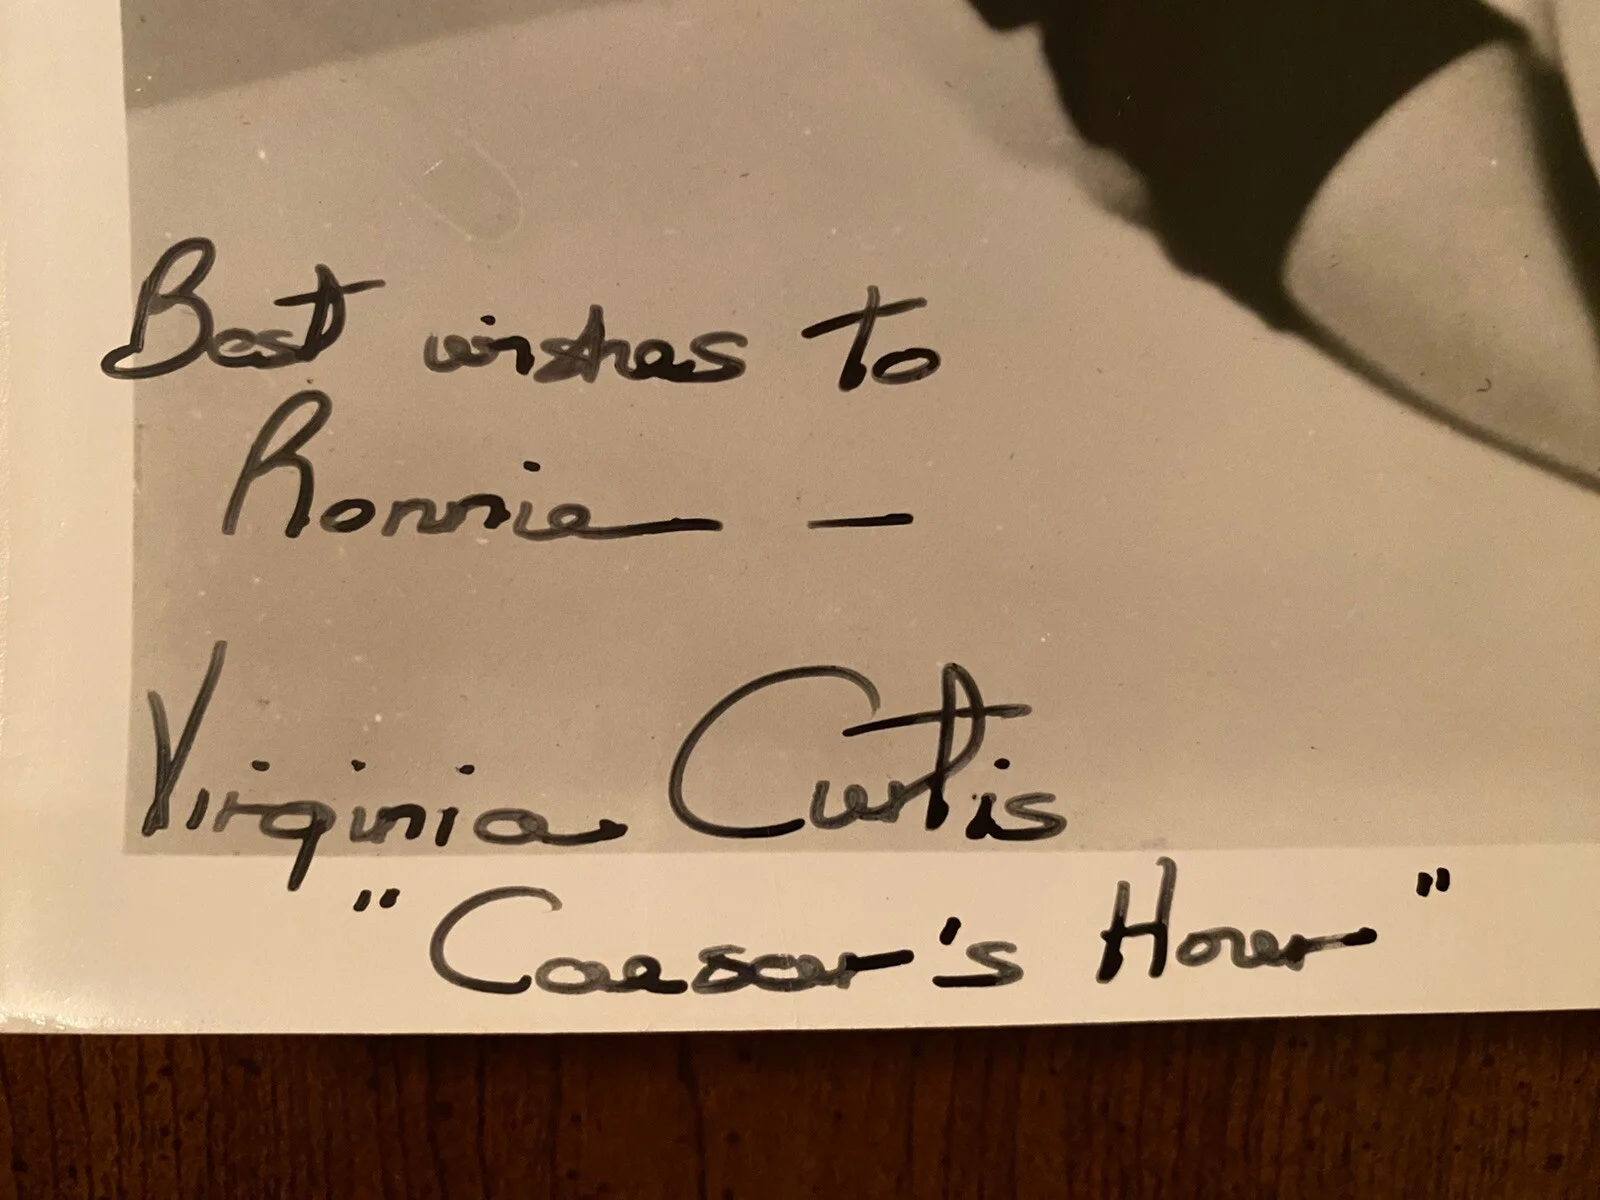 Best wishes to
Ronnie — —
Virginia Curtis
"Caesar's Hour"